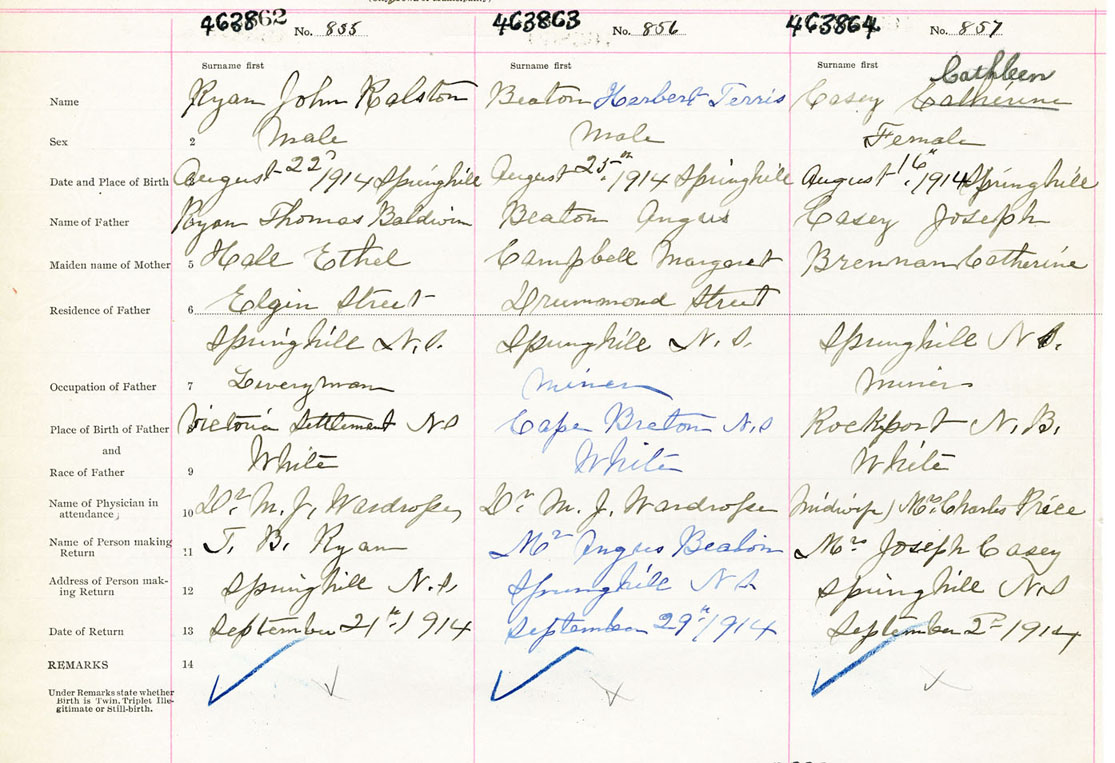 463862 No. 855 463863 No. 856 463864 No. 857
Surname first Surname first Surname first Cathleen
Name Ryan John Ralston Beaton Herbert Ferris Casey Catherine
Sex 2 Male Male Female
Date and Place of Birth August 22d/1914 Springhill August 25th/1914 Springhill August 16th/1914 Springhill
Name of Father Ryan Thomas Baldwin Beaton Angus Casey Joseph
Maiden name of Mother 5 Hale Ethel Campbell Margaret Brennan Catherine
Residence of Father 6 Elgin Street Drummond Street
Springhill N.S. Springhill N.S. Springhill N.S.
Occupation of Father 7 Liveryman Miner Miner
Place of Birth of Father Victoria Settlement N S Cape Breton N.S Rockport N.B.
and
Race of Father 9 White White White
Name of Physician in attendance; 10 Dr. M. J. Wardrope Dr. M. J. Wardrope Midwife) Mrs. Charles Price
Name of Person making Return 11 T. B. Ryan Mr Angus Beaton Mrs Joseph Casey
Address of Person mak-
ing Return 12 Springhill N.S. Springhill N S. Springhill N.S
Date of Return 13 September 21st/1914 September 29th/1914 September 2d/1914
REMARKS 14
Under Remarks state whether
Birth is Twin, Triplet Ille-
gitimate or Still-birth.